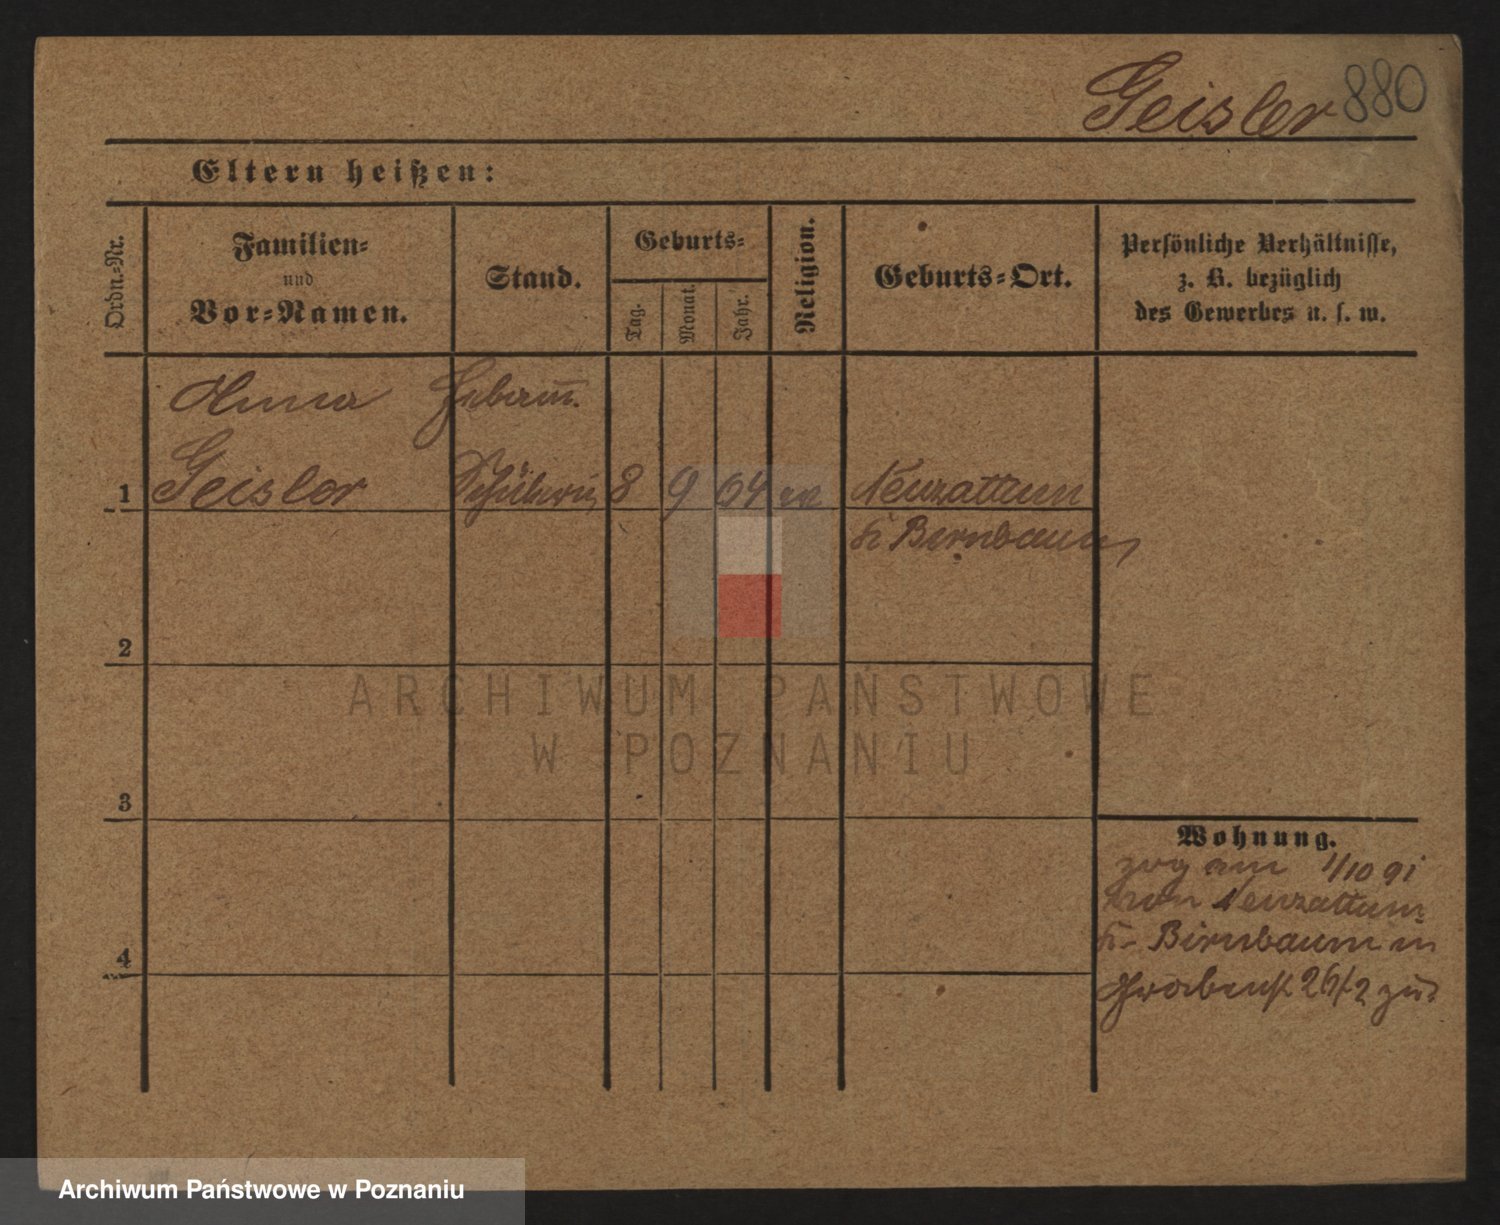 Geisler 880
Eltern heißen:
Ordn.-Nr.
Familien-
und
Vor-Namen.
Stand.
Geburts-
Tag.
Monat.
Jahr.
Religion.
Geburts-Ort.
Persönliche Verhältnisse,
z. B. bezüglich
des Gewerbes u. s. w.
Anna Hebam̄.
1 Geisler Schülerin 8 9 64 ev Neuzattum
Kr Birnbaum
2
3
4
ARCHIWUM PAŃSTWOWE
W POZNANIU
Wohnung.
zog am 1/10 91
von Neuzattum
Kr Birnbaum in
Grabenst 26/2 zu
Archiwum Państwowe w Poznaniu